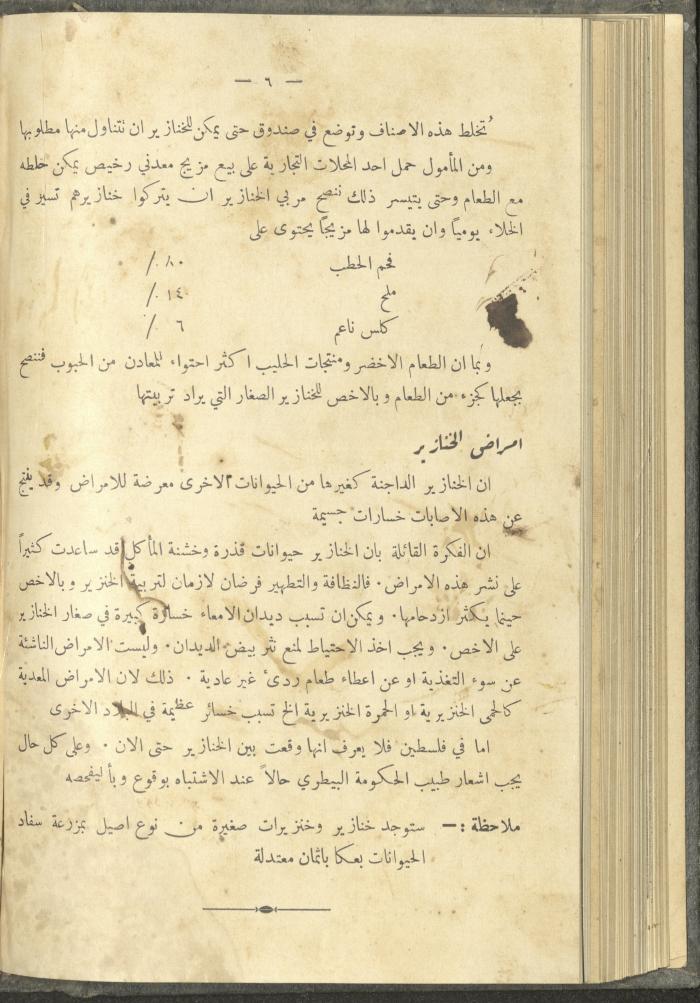 — ٦ —
تُخلط هذه الاصناف وتوضع في صندوق حتى يمكن للخنازير ان تتناول منها مطلوبها
ومن المأمول حمل احد المحلات التجارية على بيع مزيج معدني رخيص يمكن خلطه
مع الطعام وحتى يتيسر ذلك ننصح مربي الخنازير ان يتركوا خنازيرهم تسير في
الخلاء يومياً وان يقدموا لها مزيجاً يحتوى على
فحم الحطب ٨٠ ٪
ملح ١٤ ٪
كلس ناعم ٦ ٪
وبما ان الطعام الاخضر ومنتجات الحليب اكثر احتواء للمعادن من الحبوب فننصح
بجعلها كجزء من الطعام وبالاخص للخنازير الصغار التي يراد تربيتها
امراض الخنازير
ان الخنازير الداجنة كغيرها من الحيوانات الاخرى معرضة للامراض وقد ينتج
عن هذه الاصابات خسارات جسيمة
ان الفكرة القائلة بان الخنازير حيوانات قذرة وخشنة المأكل قد ساعدت كثيراً
على نشر هذه الامراض. فالنظافة والتطهير فرضان لازمان لتربية الخنزير وبالاخص
حينما يكثر ازدحامها. ويمكن ان تسبب ديدان الامعاء خسارة كبيرة في صغار الخنازير
على الاخص. ويجب اخذ الاحتياط لمنع نثر بيض الديدان. وليست الامراض الناشئة
عن سوء التغذية او عن اعطاء طعام ردئ غير عادية. ذلك لان الامراض المعدية
كالحمى الخنزيرية او الحمرة الخنزيرية الخ تسبب خسائر عظيمة في البلاد الاخرى
اما في فلسطين فلا يعرف انها وقعت بين الخنازير حتى الان. وعلى كل حال
يجب اشعار طبيب الحكومة البيطري حالاً عند الاشتباه بوقوع وبأ ليفحصه
ملاحظة :— ستوجد خنازير وخنزيرات صغيرة من نوع اصيل بمزرعة سفاد
الحيوانات بعكا باثمان معتدلة